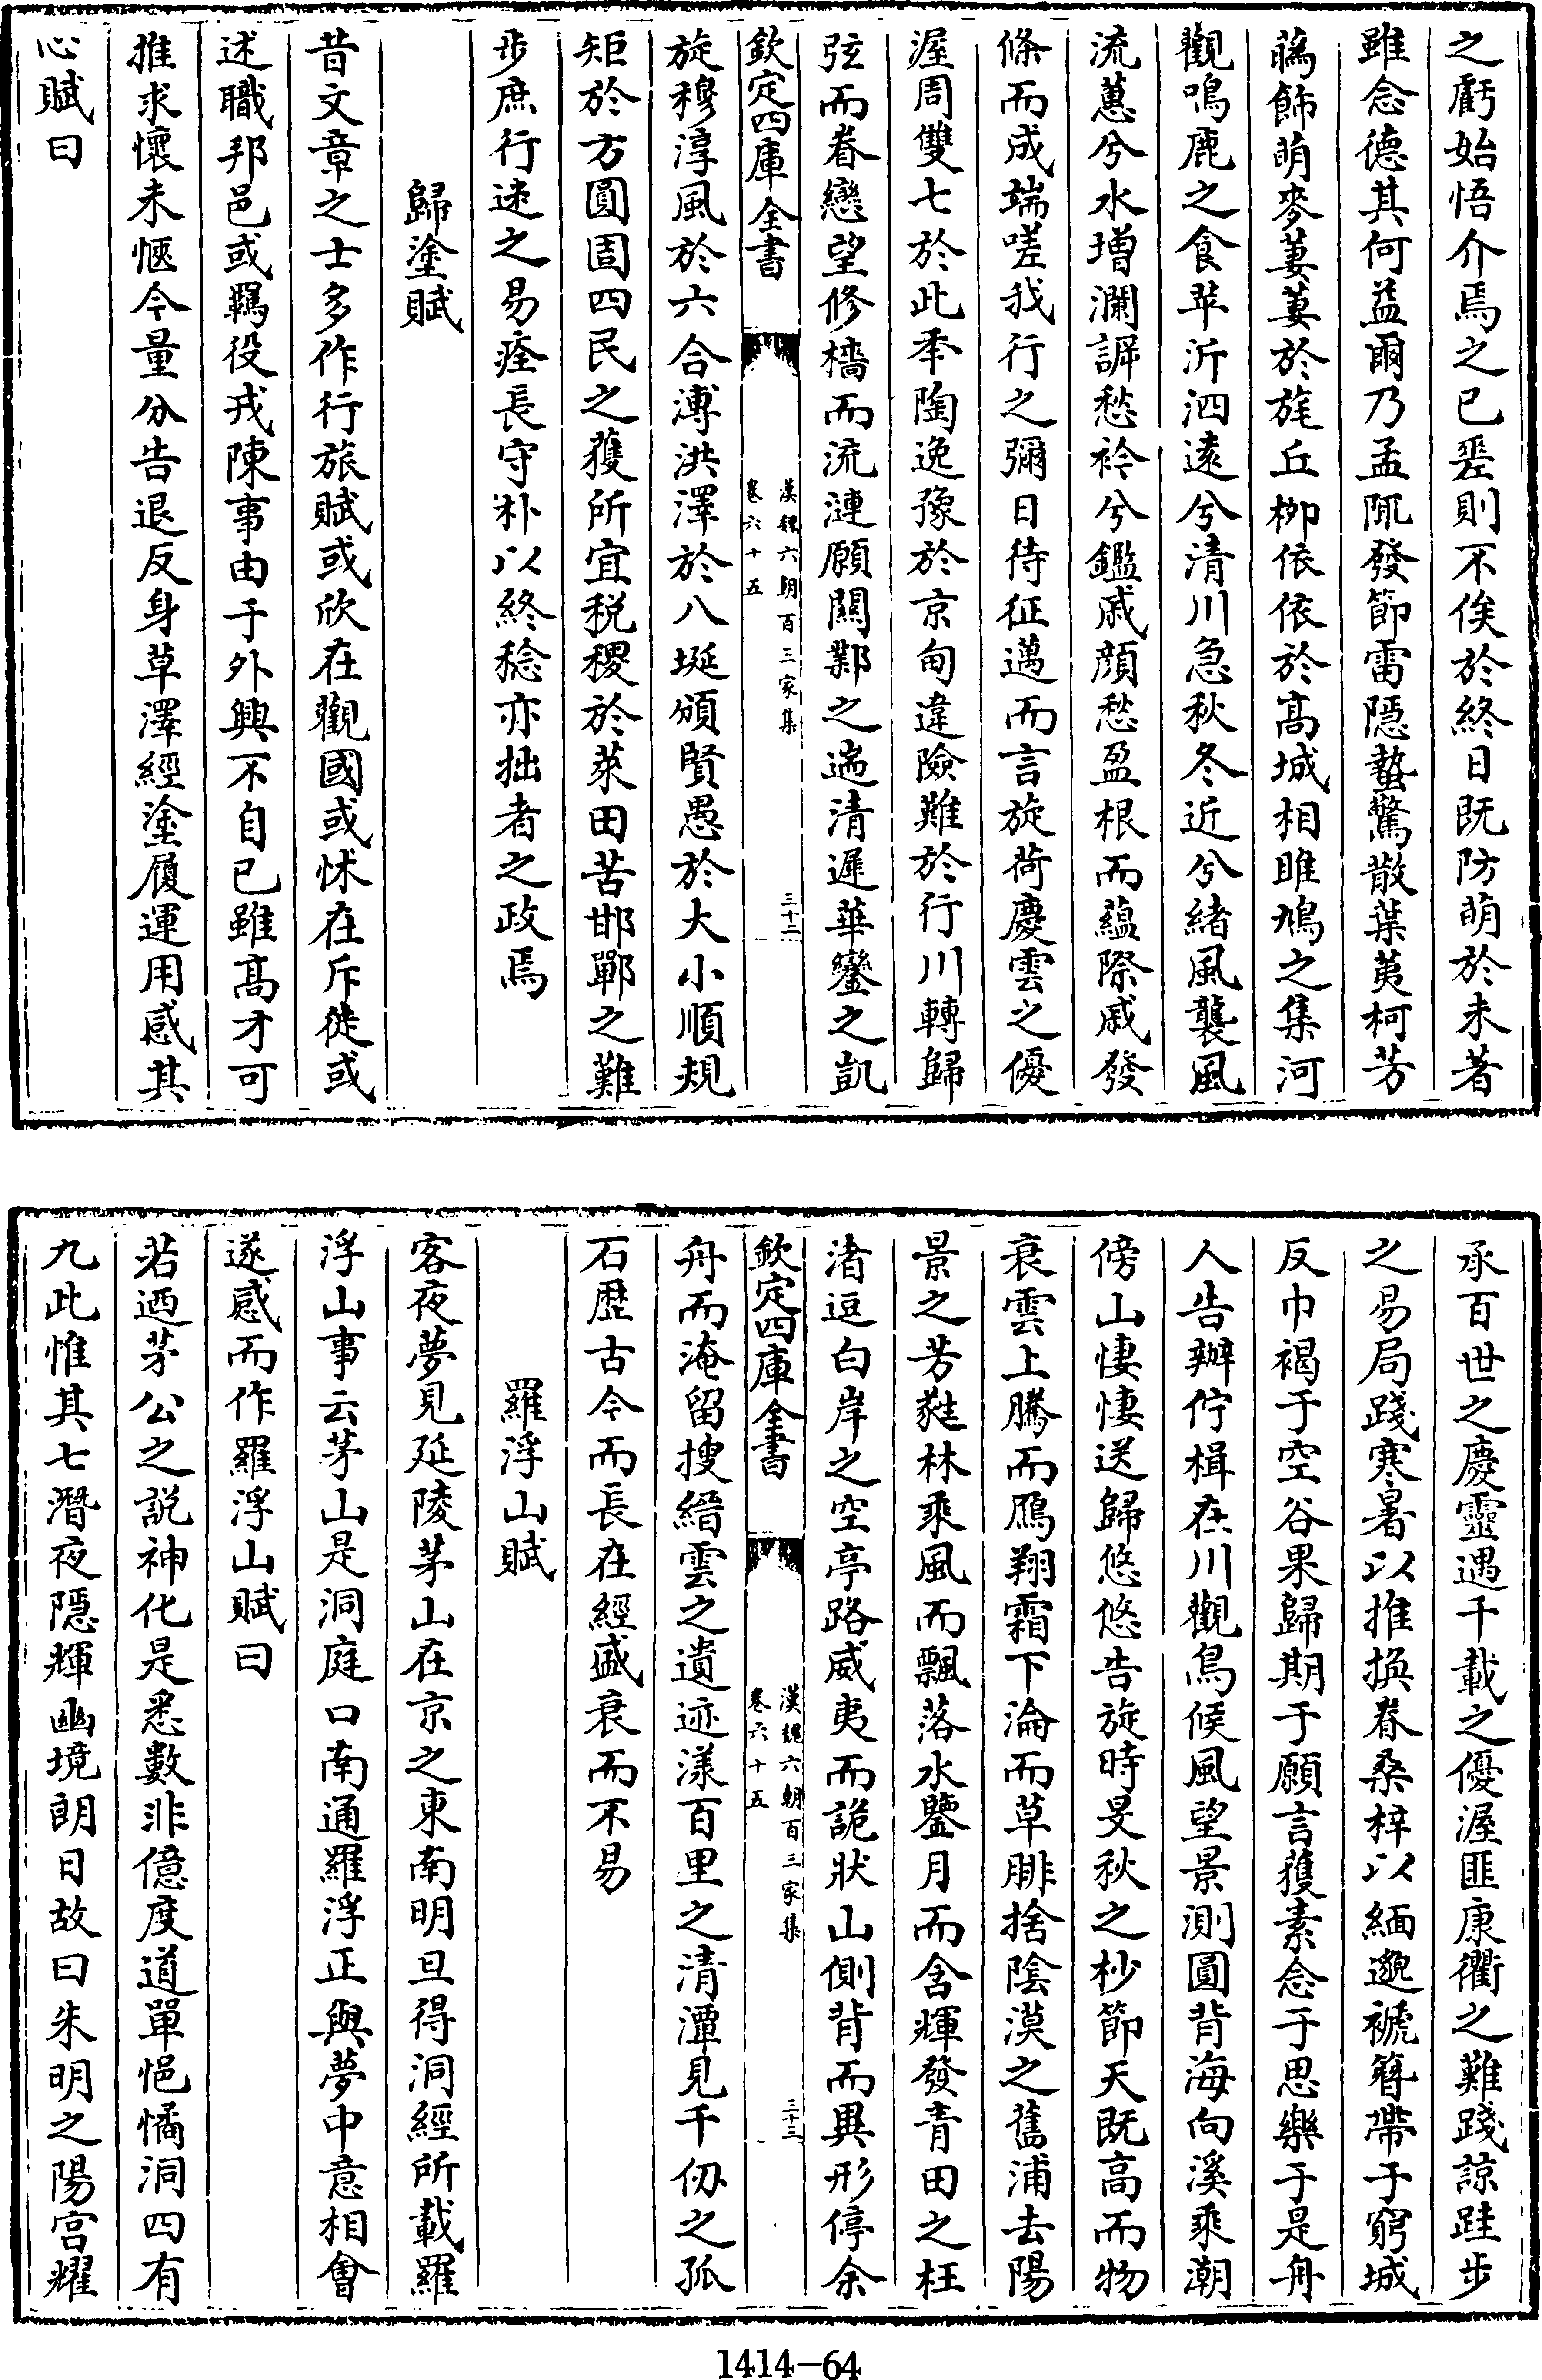 之虧始悟介焉之已㟒則不俟於終日既防萌於未著
雖念德其何益爾乃孟陬發節雷隱蟄驚散葉荑柯芳
蘤飾萌麥萋萋於旄丘栁依依於髙城相雎鳩之集河
觀鳴鹿之食苹沂泗逺兮清川急秋冬近兮緒風襲風
流蕙兮水増瀾訴愁衿兮鑑戚顔愁盈根而藴際戚發
條而成端嗟我行之彌日待征邁而言旋荷慶雲之優
渥周雙七於此年陶逸豫於京甸違險難於行川轉歸
弦而眷戀望修檣而流漣願關鄴之遄清遲華鑾之凱
欽定四庫全書
漢魏六朝百三家集
卷六十五
三十二
旋穆淳風於六合溥洪澤於八埏頒賢愚於大小順規
矩於方圓固四民之獲所宜稅稷於萊田苦邯鄲之難
步庶行迷之易痊長守朴以終稔亦拙者之政焉
歸塗賦
昔文章之士多作行旅賦或欣在觀國或怵在斥徙或
述職邦邑或羈役戎陳事由于外興不自已雖髙才可
推求懐未愜今量分告退反身草澤經塗履運用感其
心賦曰
承百世之慶靈遇千載之優渥匪康衢之難踐諒跬步
之易局踐寒暑以推換眷桑梓以緬邈褫簪帶于窮城
反巾褐于空谷果歸期于願言獲素念于思樂于是舟
人告辦佇楫在川觀鳥候風望景測圓背海向溪乘潮
傍山悽悽送歸悠悠告旋時旻秋之杪節天既高而物
衰雲上騰而鴈翔霜下淪而草腓捨陰漠之舊浦去陽
景之芳蕤林乘風而飄落水鑒月而含輝發青田之枉
渚逗白岸之空亭路威夷而詭狀山側背而異形停余
欽定四庫全書
漢魏六朝百三家集
卷六十五
三十三
舟而淹留搜縉雲之遺迹漾百里之清潭見千仞之孤
石歴古今而長在經盛衰而不易
羅浮山賦
客夜夢見延陵茅山在京之東南明旦得洞經所載羅
浮山事云茅山是洞庭口南通羅浮正與夢中意相㑹
遂感而作羅浮山賦曰
若迺茅公之說神化是悉數非億度道單悒憰洞四有
九此惟其七潛夜隱輝幽境朗日故曰朱明之陽宫耀
1414—64